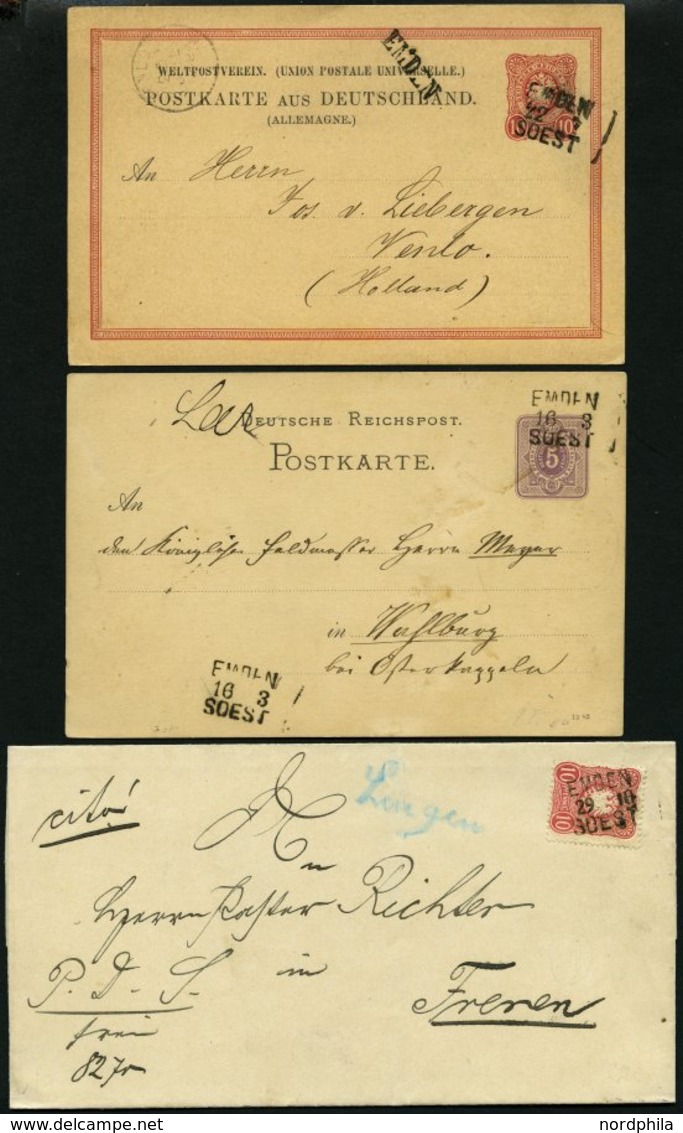 EMDEN
WELTPOSTVEREIN. (UNION POSTALE UNIVERSELLE.)
POSTKARTE AUS DEUTSCHLAND.
(ALLEMAGNE.)
10
EMDEN
22 3
SOEST
An Herrn
Jos. v. Liebergen
Venlo.
(Holland)
EMDEN
16 3
SOEST
DEUTSCHE REICHSPOST.
POSTKARTE.
5
An
den Königlichen Feldmesser Herrn Meyer
in Wahlburg
bei Osterkappeln
EMDEN
16 3
SOEST
cito!
Lingen
10 10
EMDEN
29 10
SOEST
Herrn Pastor Richter
P. D. S. in Freren
frei
827
nordphila